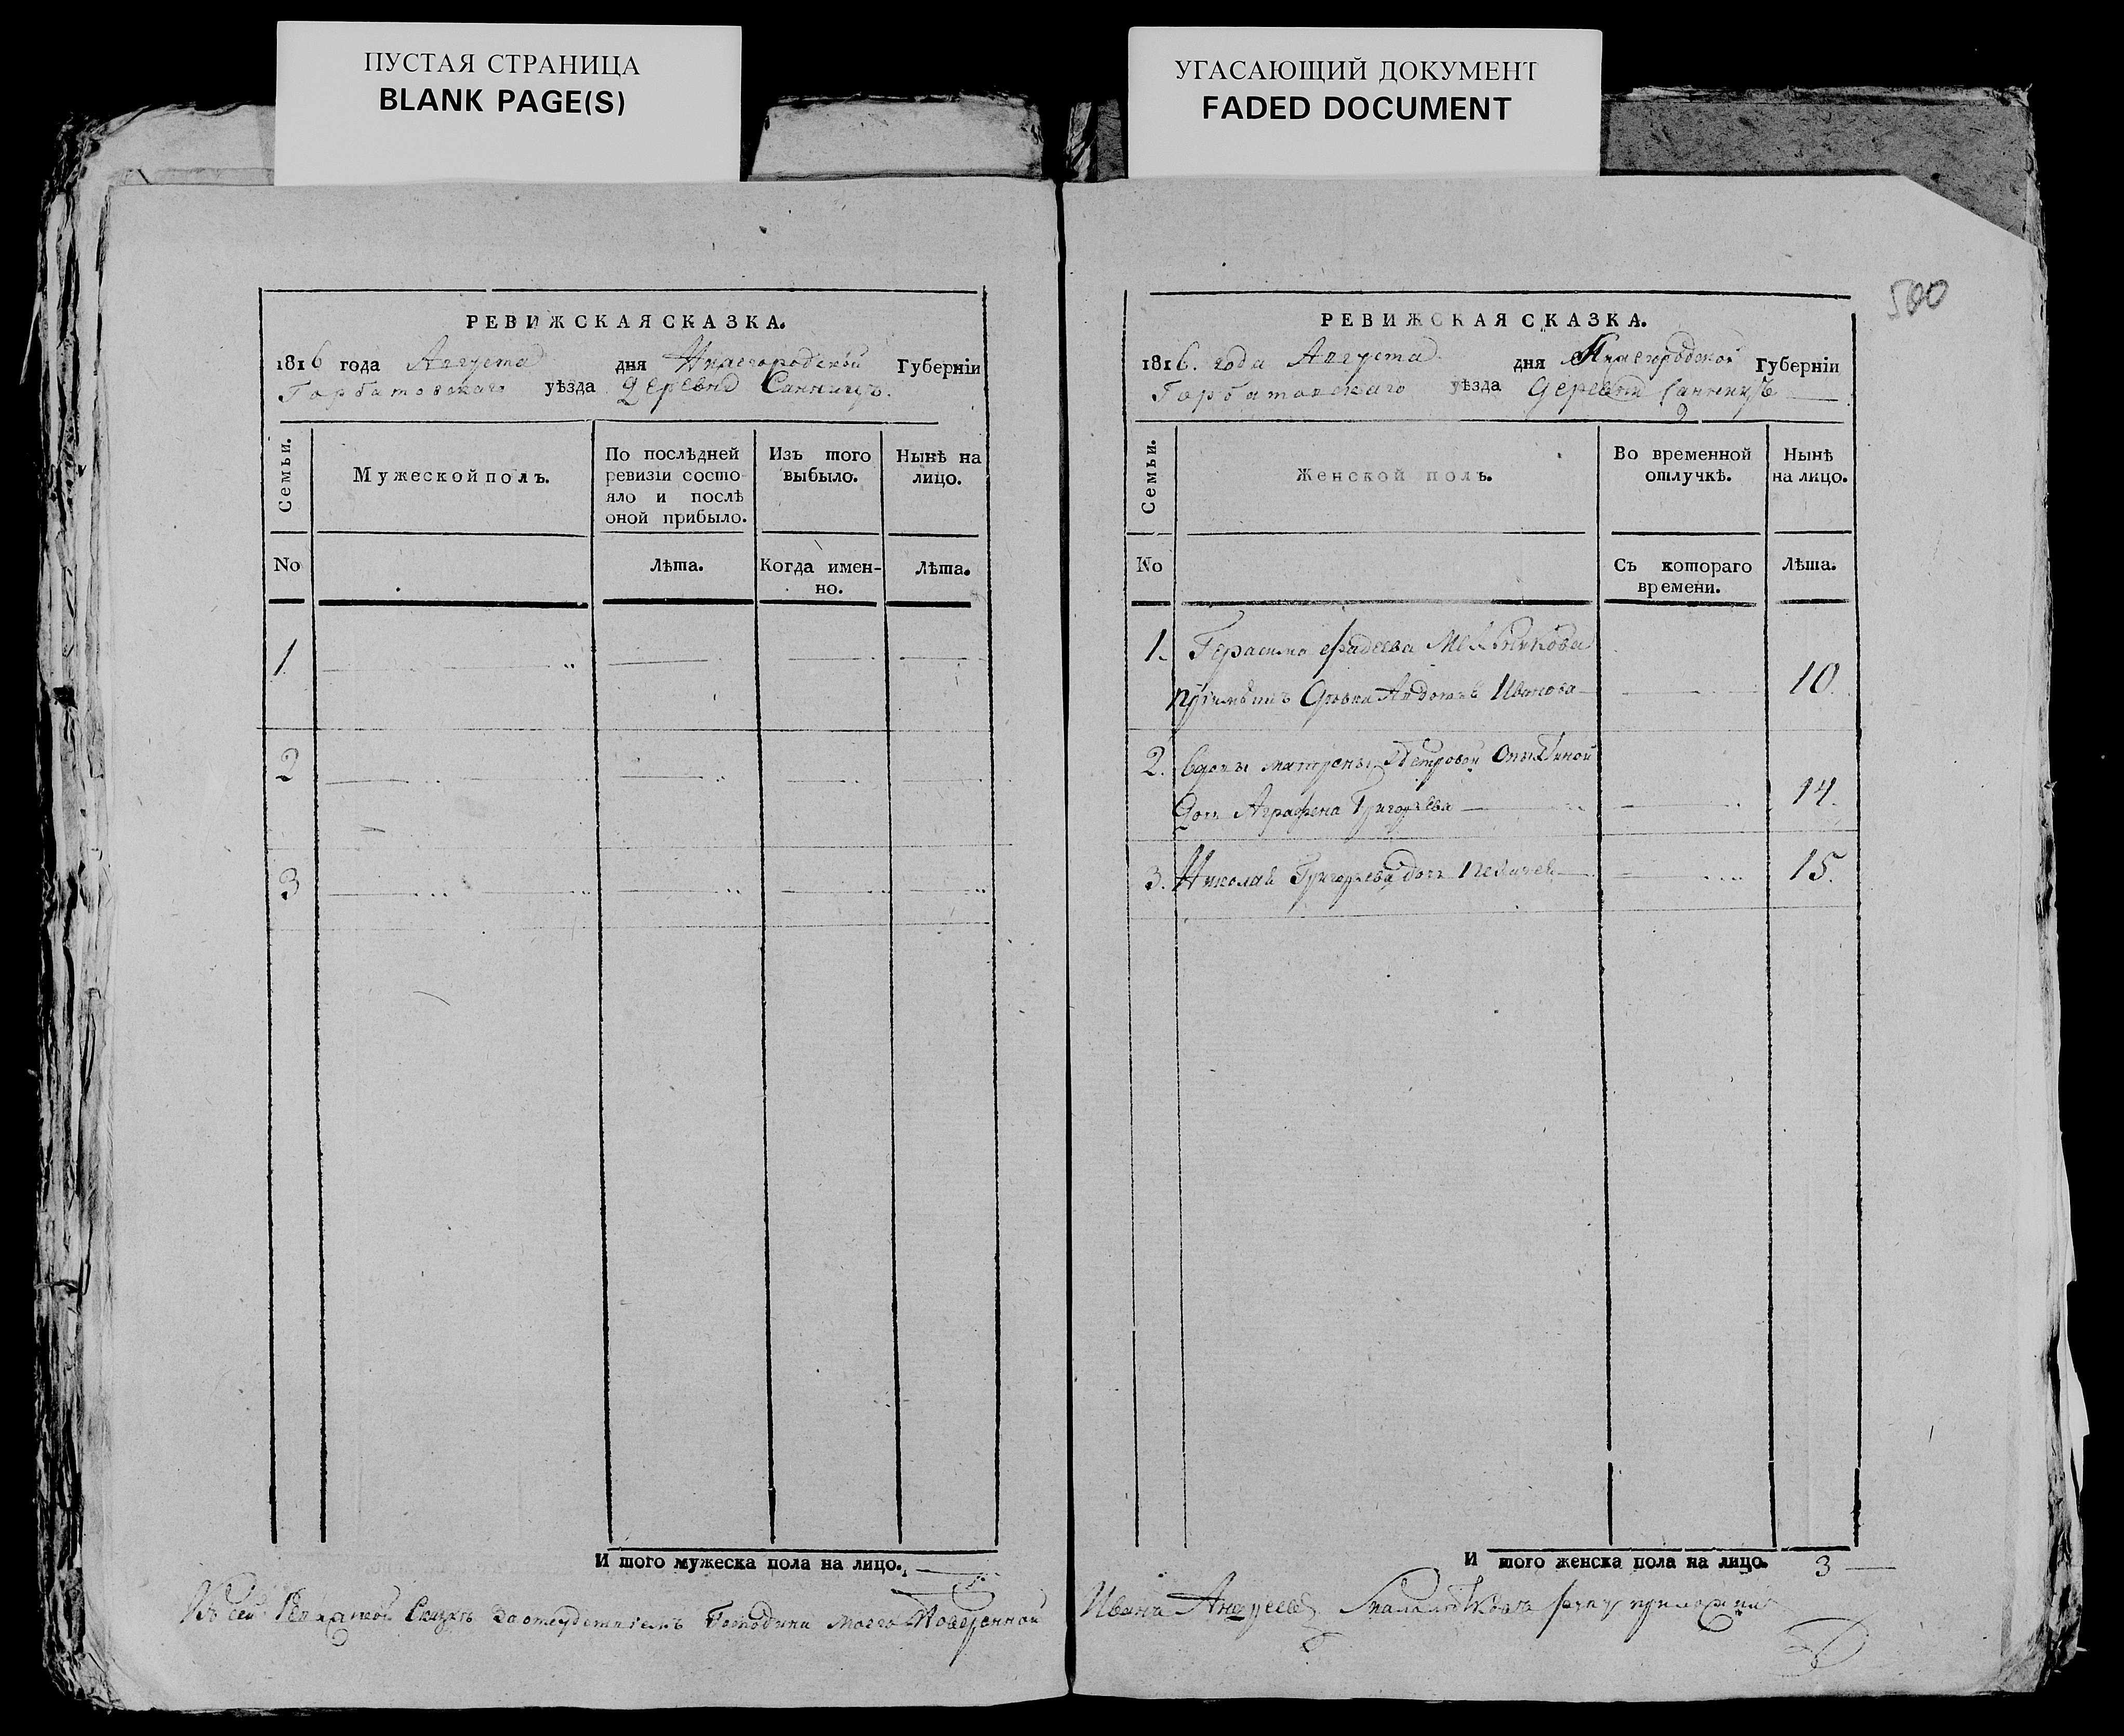 ПУСТАЯ СТРАНИЦА
BLANK PAGE(S)
УГАСАЮЩИЙ ДОКУМЕНТ
FADED DOCUMENT
РЕВИЖСКАЯ СКАЗКА.
1816 года Августа дня Нижегородской Губерніи
Горбатовскаго уѣзда деревня Санницъ.
Семьи.
Мужеской полъ.
По послѣдней
ревизіи состо-
яло и послѣ
оной прибыло.
Изъ того
выбыло.
Нынѣ на
лицо.
No
Лѣта.
Когда имен-
но.
Лѣта.
1
2
3
И того мужеска пола на лицо.
500
РЕВИЖСКАЯ СКАЗКА.
1816. года Августа дня Нижегородской Губерніи
Горбатовскаго уѣзда деревни Санницъ
Семьи.
Женской полъ.
Во временной
отлучкѣ.
Нынѣ
на лицо.
No
Съ котораго
времени.
Лѣта.
1. Герасима Фадеева
Иванова 10.
2. вдовы матрены Петровой
доч Аграфена Григорьева 14.
3. Николая Григорьева доч 15.
И того женска пола на лицо. 3
Къ сей Сказкѣ Господина моего Повѣренной Иванъ Андреевъ руку приложилъ